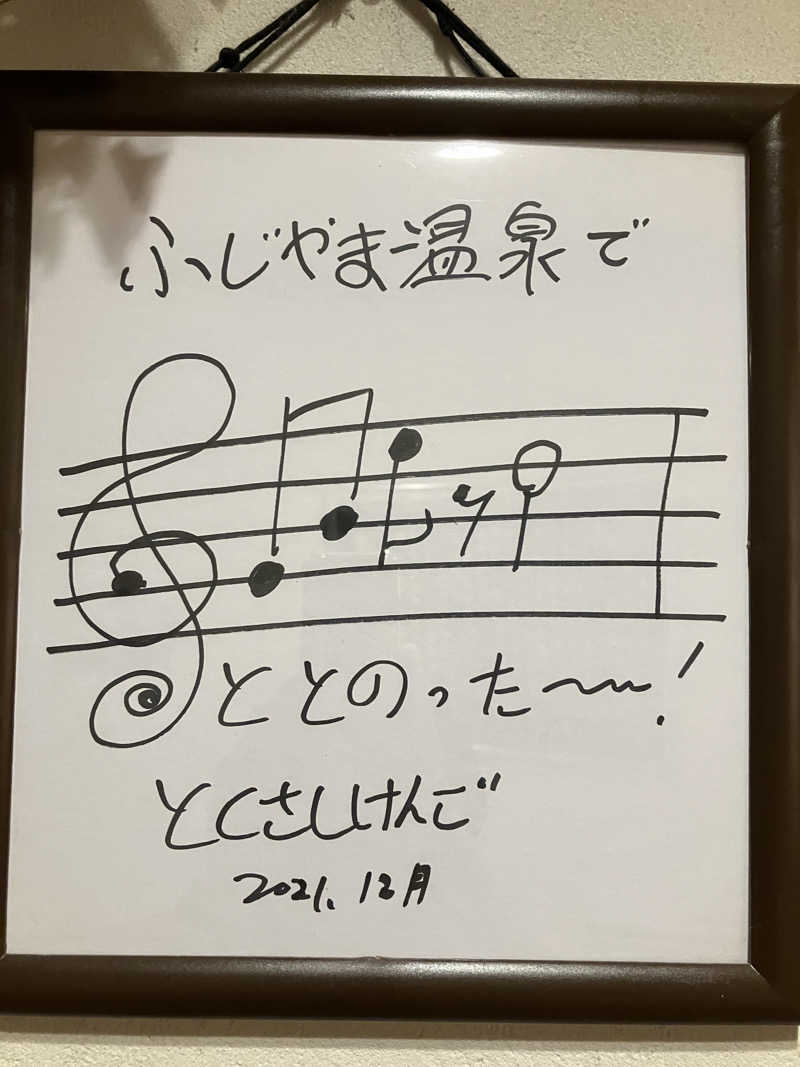 ふじやま温泉で
ととのった〜!
とくさしけんご
2021.12月